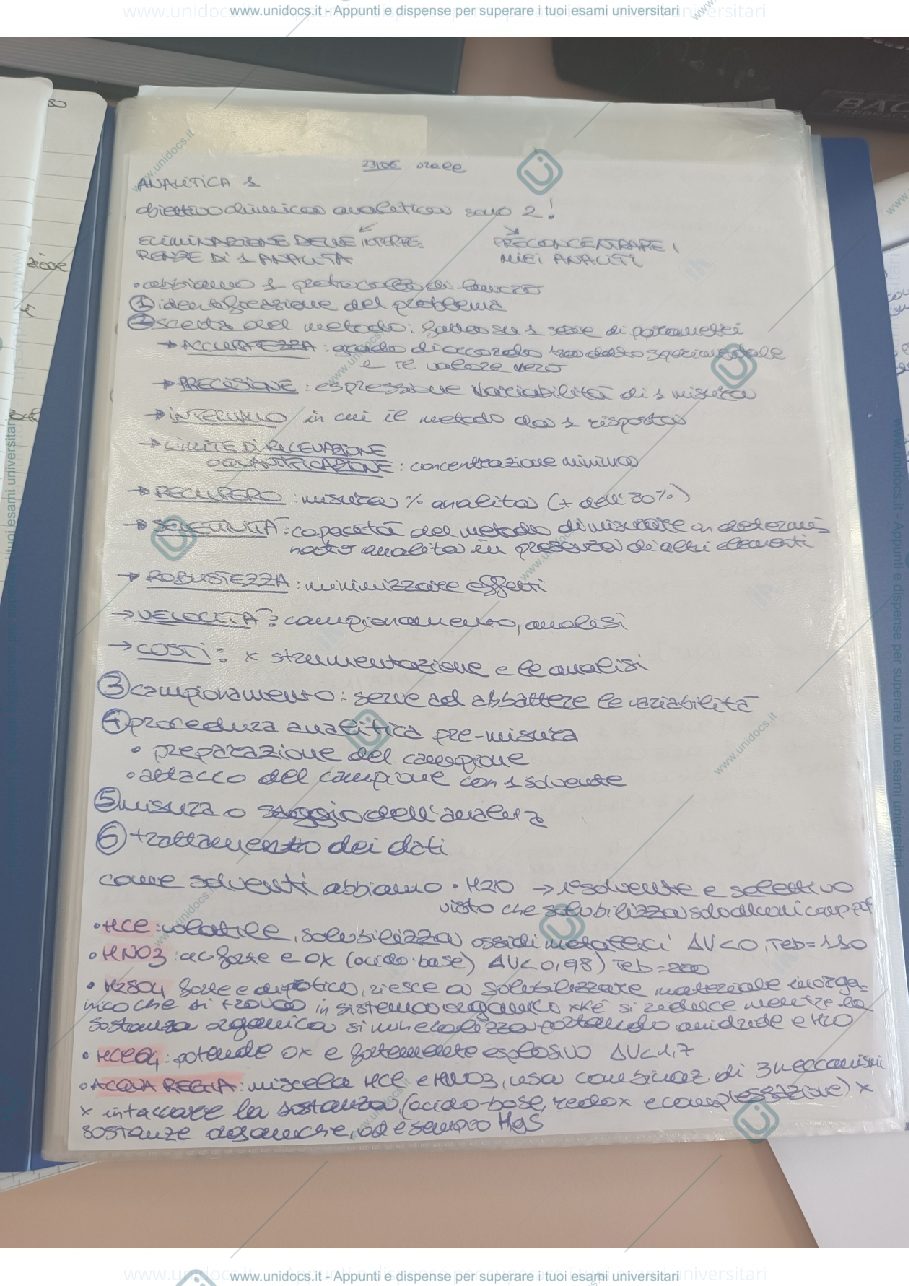 www.unidocs.it - Appunti e dispense per superare i tuoi esami universitari
23/06 orale
ANALITICA 1
obiettivo chimica analitica sono 2!
ELIMINAZIONE DELLE INTERFE
RENZE DI 1 ANALITA
PRECONCENTRARE I
MIEI ANALITI
• abbiamo 1 protocollo di lavoro
① identificazione del problema
② scelta del metodo: su 1 serie di parametri
→ ACCURATEZZA: grado di accordo tra dato sperimentale
e il valore vero
→ PRECISIONE: espressione variabilità di 1 misura
→ INTERVALLO in cui il metodo da 1 risposta
→ LIMITE DI RILEVAZIONE
o QUANTIFICAZIONE: concentrazione minima
→ RECUPERO: misura % analita (+ dell'80%)
→ SELETTIVITÀ: capacità del metodo di misurare un determi-
nato analita in presenza di altri elementi
→ ROBUSTEZZA: minimizzare effetti
→ VELOCITÀ: campionamento, analisi
→ COSTI: x strumentazione e le analisi
③ campionamento: serve ad abbattere le variabilità
④ procedura analitica pre-misura
• preparazione del campione
• attacco del campione con 1 solvente
⑤ misura o saggio dell'analita
⑥ trattamento dei dati
come solventi abbiamo • H2O → solvente e selettivo
visto che solubilizza solo alcuni comp
• HCl: volatile, solubilizza ossidi metallici ΔV<0, Teb=110
• HNO3: ac forte e ox (acido-base) ΔV<0,98) Teb=200
• H2SO4 forte e riesce a solubilizzare materiale inorga-
nico che si trova in sistema organico xké si riduce mentre la
sostanza organica si mineralizza portando anidride e H2O
• HClO4: potente ox e fortemente esplosivo ΔV<1,7
• ACQUA REGIA: miscela HCl e HNO3, usa combinaz di 3 meccanismi
x intaccare la sostanza (acido-base, redox e complessazione) x
sostanze ad esempio HgS
www.unidocs.it - Appunti e dispense per superare i tuoi esami universitari